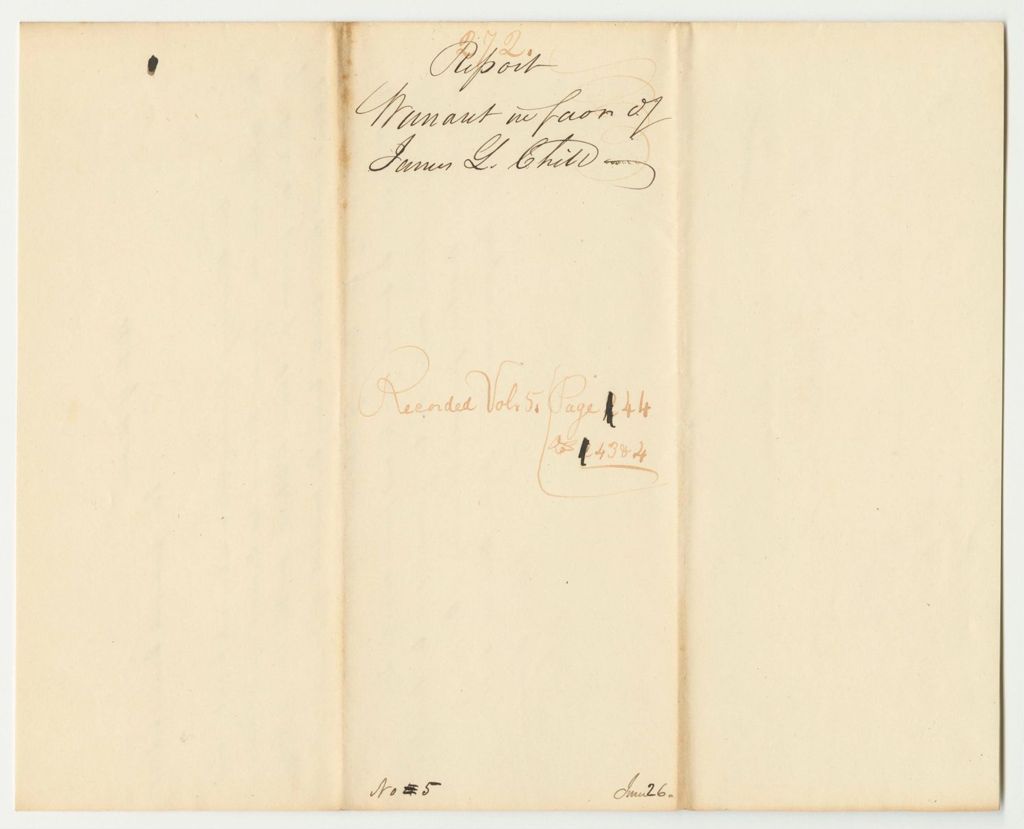 272.
Report
Warrant in favor of
James L. Child
Recorded Vol. 5. Page 144
& 143&4
No 5
June 26.